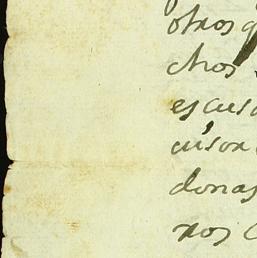 otros q
chos
escusa
cuson
donas
nos c